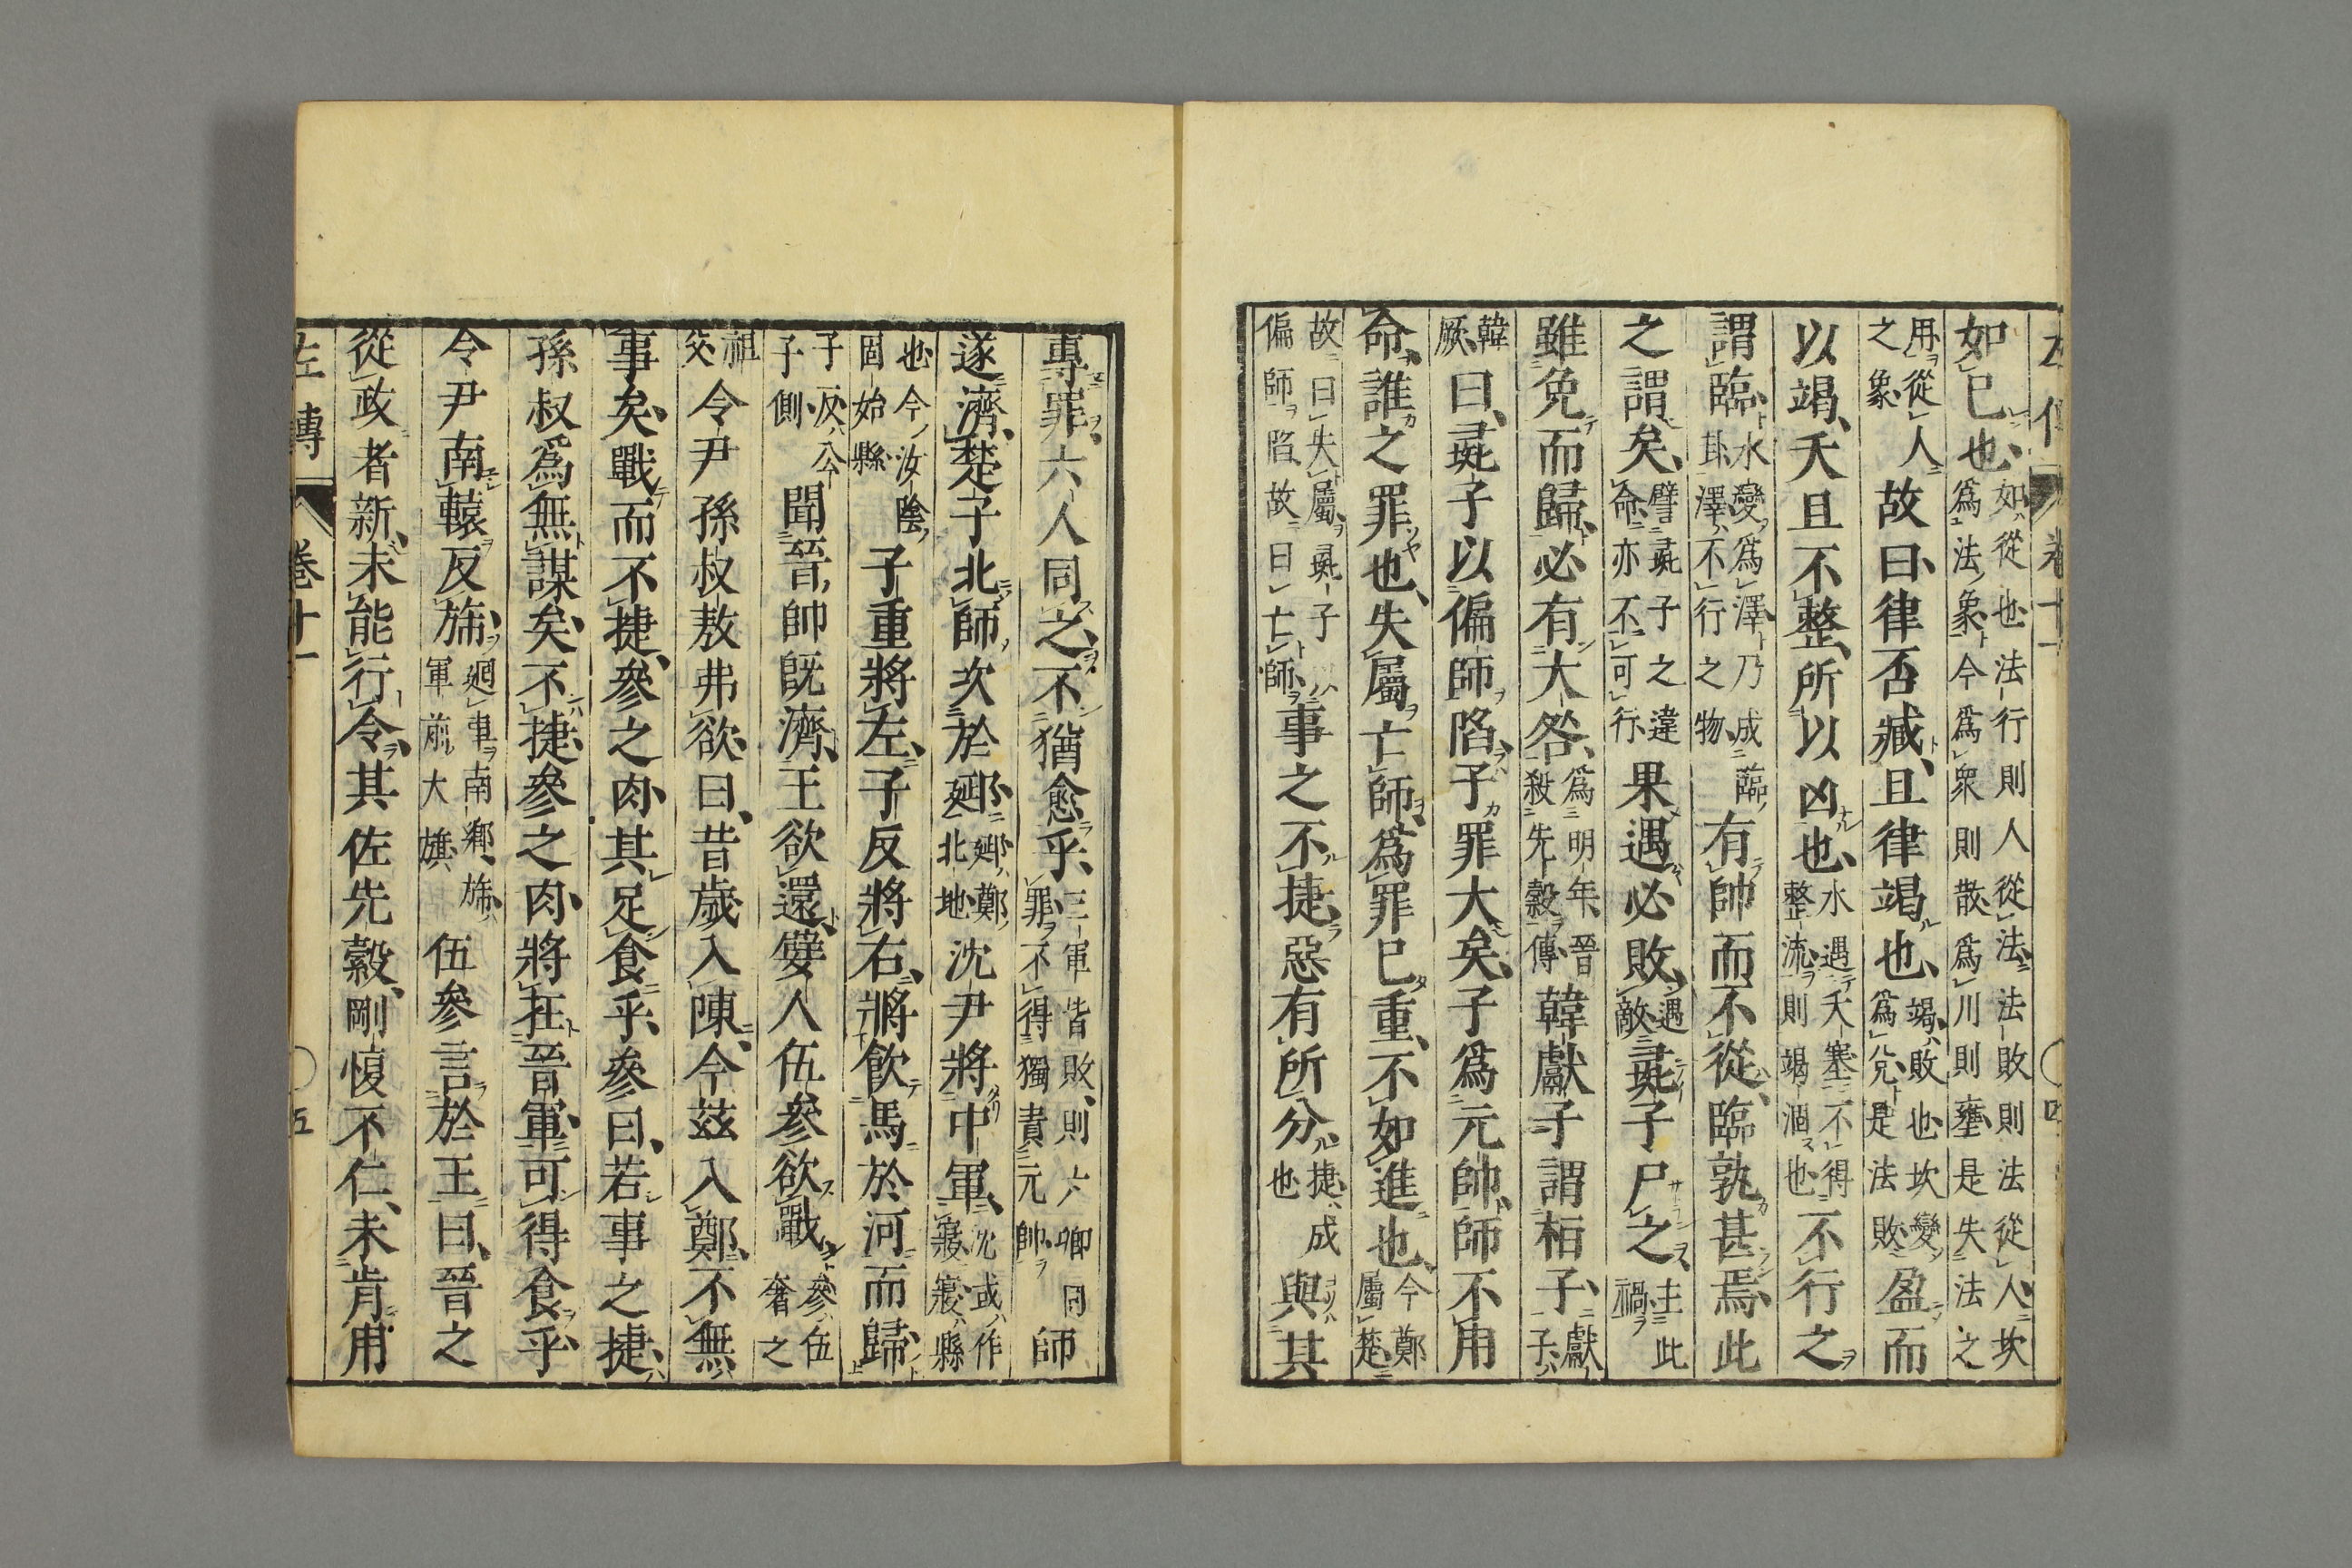 左傳 卷十一 四
如己也如從也法行則人從法法敗則法從人坎爲法象今爲衆則散爲川則壅是失法之
用從人之象故曰律否臧且律竭也竭敗也坎變爲兌是法敗盈而
以竭夭且不整所以凶也水遇夭塞不得整流則竭涸也不行之
謂臨水變爲澤乃成臨卦澤不行之物有帥而不從臨孰甚焉此
之謂矣譬彘子之違命亦不可行果遇必敗遇敵彘子尸之主此禍
雖免而歸必有大咎爲明年晉殺先縠傳韓獻子謂桓子獻子
韓厥曰彘子以偏師陷子罪大矣子爲元帥師不用
命誰之罪也失屬亡師爲罪已重不如進也今鄭屬楚
故曰失屬彘子以偏師陷故曰亡師事之不捷惡有所分捷成也與其
專罪六人同之不猶愈乎三軍皆敗則六卿同罪不得獨責元帥師
遂濟楚子北師次於郔郔鄭北地沈尹將中軍沈或作寢寢縣
也今汝陰固始縣子重將左子反將右將飲馬於河而歸
子反公子側聞晉師既濟王欲還嬖人伍參欲戰參伍奢之
祖父令尹孫叔敖弗欲曰昔歲入陳今茲入鄭不無
事矣戰而不捷參之肉其足食乎參曰若事之捷
孫叔爲無謀矣不捷參之肉將在晉軍可得食乎
令尹南轅反旆廻車南鄉旆軍前大旗伍參言於王曰晉之
從政者新未能行令其佐先縠剛愎不仁未肯用
左傳 卷十一 五